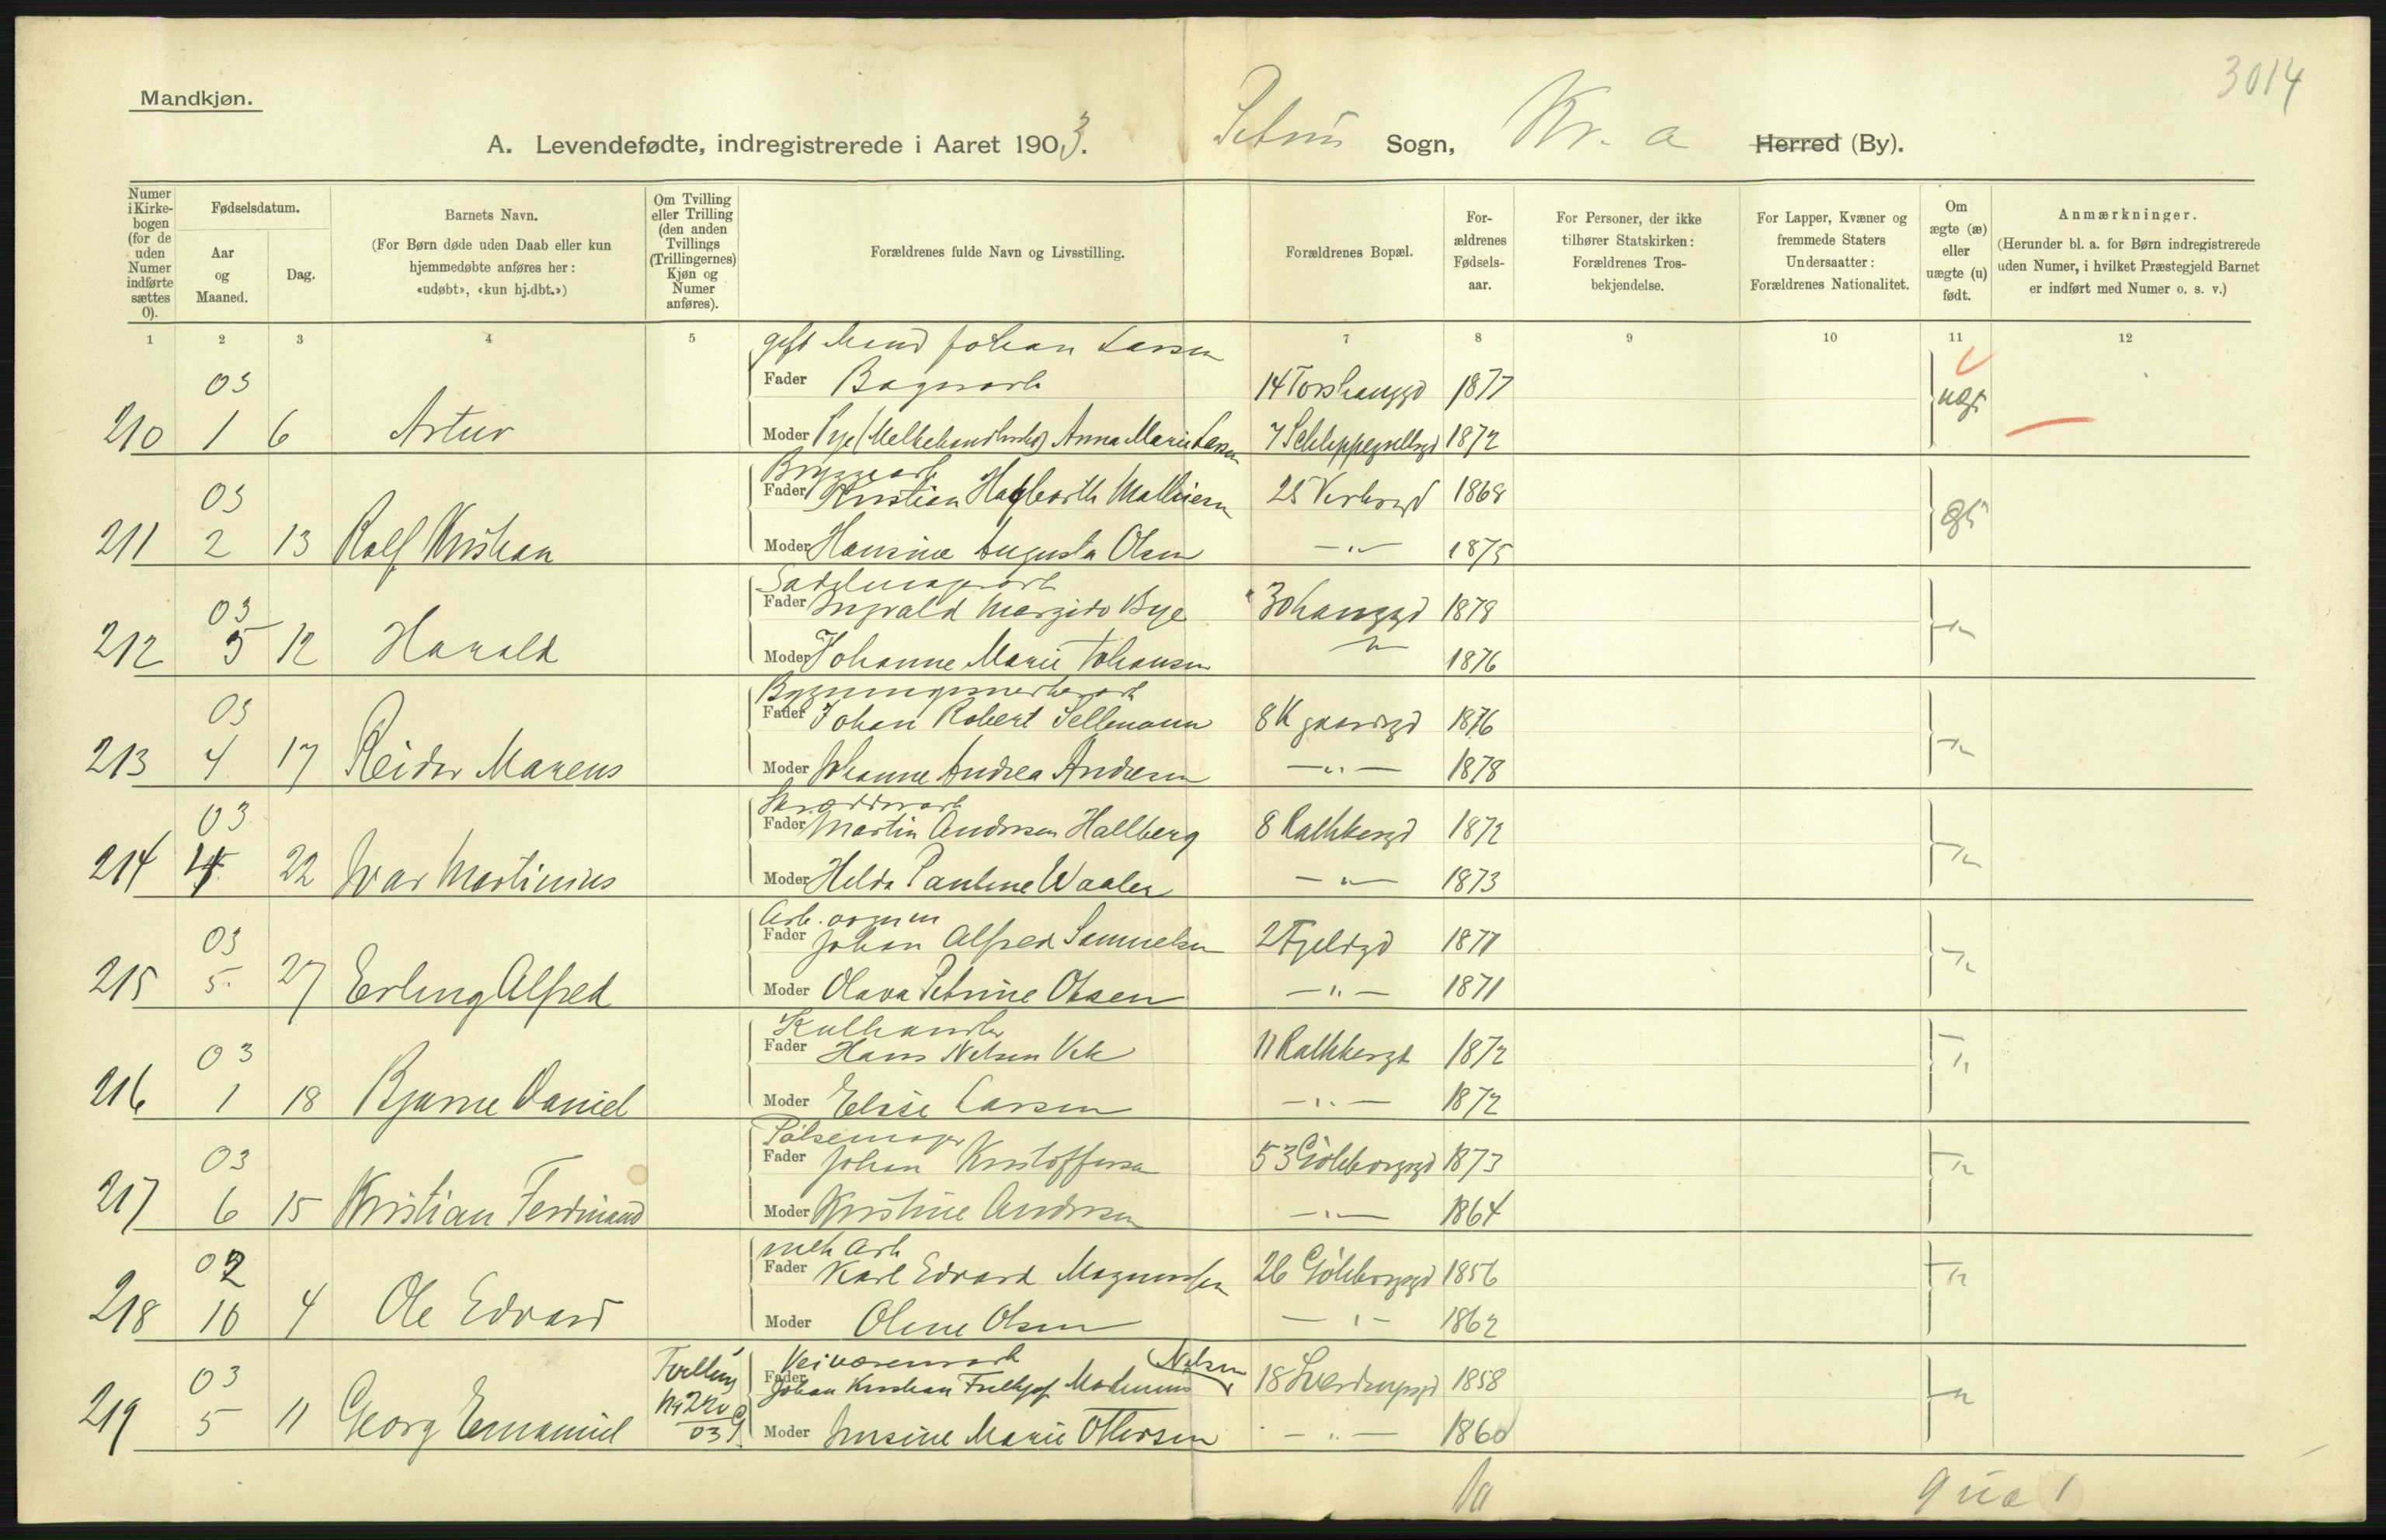 3014
Mandkjøn.
A. Levendefødte, indregistrerede i Aaret 1903. Petrus Sogn, Kr. a Herred (By).
Numer i Kirkebogen (for de uden Numer indførte sættes 0).
Fødselsdatum.
Aar og Maaned.
Dag.
Barnets Navn.
(For Børn døde uden Daab eller kun hjemmedøbte anføres her: «udøbt», «kun hj.dbt.»)
Om Tvilling eller Trilling (den anden Tvillings (Trillingernes) Kjøn og Numer anføres).
Forældrenes fulde Navn og Livsstilling.
Forældrenes Bopæl.
Forældrenes Fødselsaar.
For Personer, der ikke tilhører Statskirken: Forældrenes Trosbekjendelse.
For Lapper, Kvæner og fremmede Staters Undersaatter: Forældrenes Nationalitet.
Om ægte (æ) eller uægte (u) født.
Anmærkninger.
(Herunder bl. a. for Børn indregistrerede uden Numer, i hvilket Præstegjeld Barnet er indført med Numer o. s. v.)
1 2 3 4 5 7 8 9 10 11 12
gift Mand Johan Larsen
03 Fader Bagerarb 14 Torshauggd 1877
210 1 6 Artur Moder Anna Marie Larsen 7 Schleppegrellsgd 1872 uægt
Bryggearb
03 Fader Kristian Hagbarth Mathiesen 1868
211 2 13 Rolf Kristian Moder Hansine Augusta Olsen —"— 1875 ægt
Sadelmagerarb
03 Fader Ingvald Margido Bye 30 Hauggd 1878
212 5 12 Harald Moder Johanne Marie Johansen —"— 1876 —"—
Bygningssnekerarb
03 Fader Johan Robert Sellmann 8 Kgaardsgd 1876
213 4 17 Reidar Marcus Moder Johanne Andrea Andresen —"— 1878 —"—
Skrædderarb
03 Fader Martin Andresen Hallberg 8 Rathkesgd 1872
214 4 22 Ivar Martinius Moder Helda Pauline Waaler —"— 1873 —"—
Arb.
03 Fader Johan Alfred Samuelsen 2 Fjeldgd 1871
215 5 27 Erling Alfred Moder Olava Petrine Olsen —"— 1871 —"—
Kulhandler
03 Fader Hans Nelsen Vik 11 Rathkesgd 1872
216 1 18 Bjarne Daniel Moder Elise Larsen —"— 1872 —"—
Pølsemager
03 Fader Johan Kristoffersen 53 Göteborggd 1873
217 6 15 Kristian Ferdinand Moder Kristine Andersen —"— 1864 —"—
mek Arb
02 Fader Karl Edvard Magnussen 26 Göteborggd 1856
218 10 4 Ole Edvard Moder Oline Olsen —"— 1862 —"—
Tvilling Veivæsenarb Nelsen
03 Fader Johan Kristian Fridtjof Martinius 18 Sverdrupsgd 1858
219 5 11 Georg Emanuel Nr 220 03 G Moder Jensine Marie Ottersen —"— 1860 —"—
10 9 uæ 1